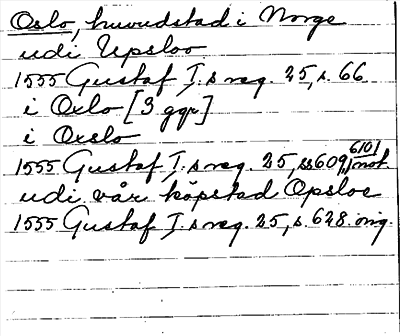 Oslo, huvudstad i Norge
udi Upsloo
1555 Gustaf I.s reg. 25, s. 66
i Oxlo [3 ggr]
i Oxslo
1555 Gustaf I.s reg. 25, ss 609, 610 / not.
udi vår köpstad Opsloe
1555 Gustaf I.s reg. 25, s. 628. orig.